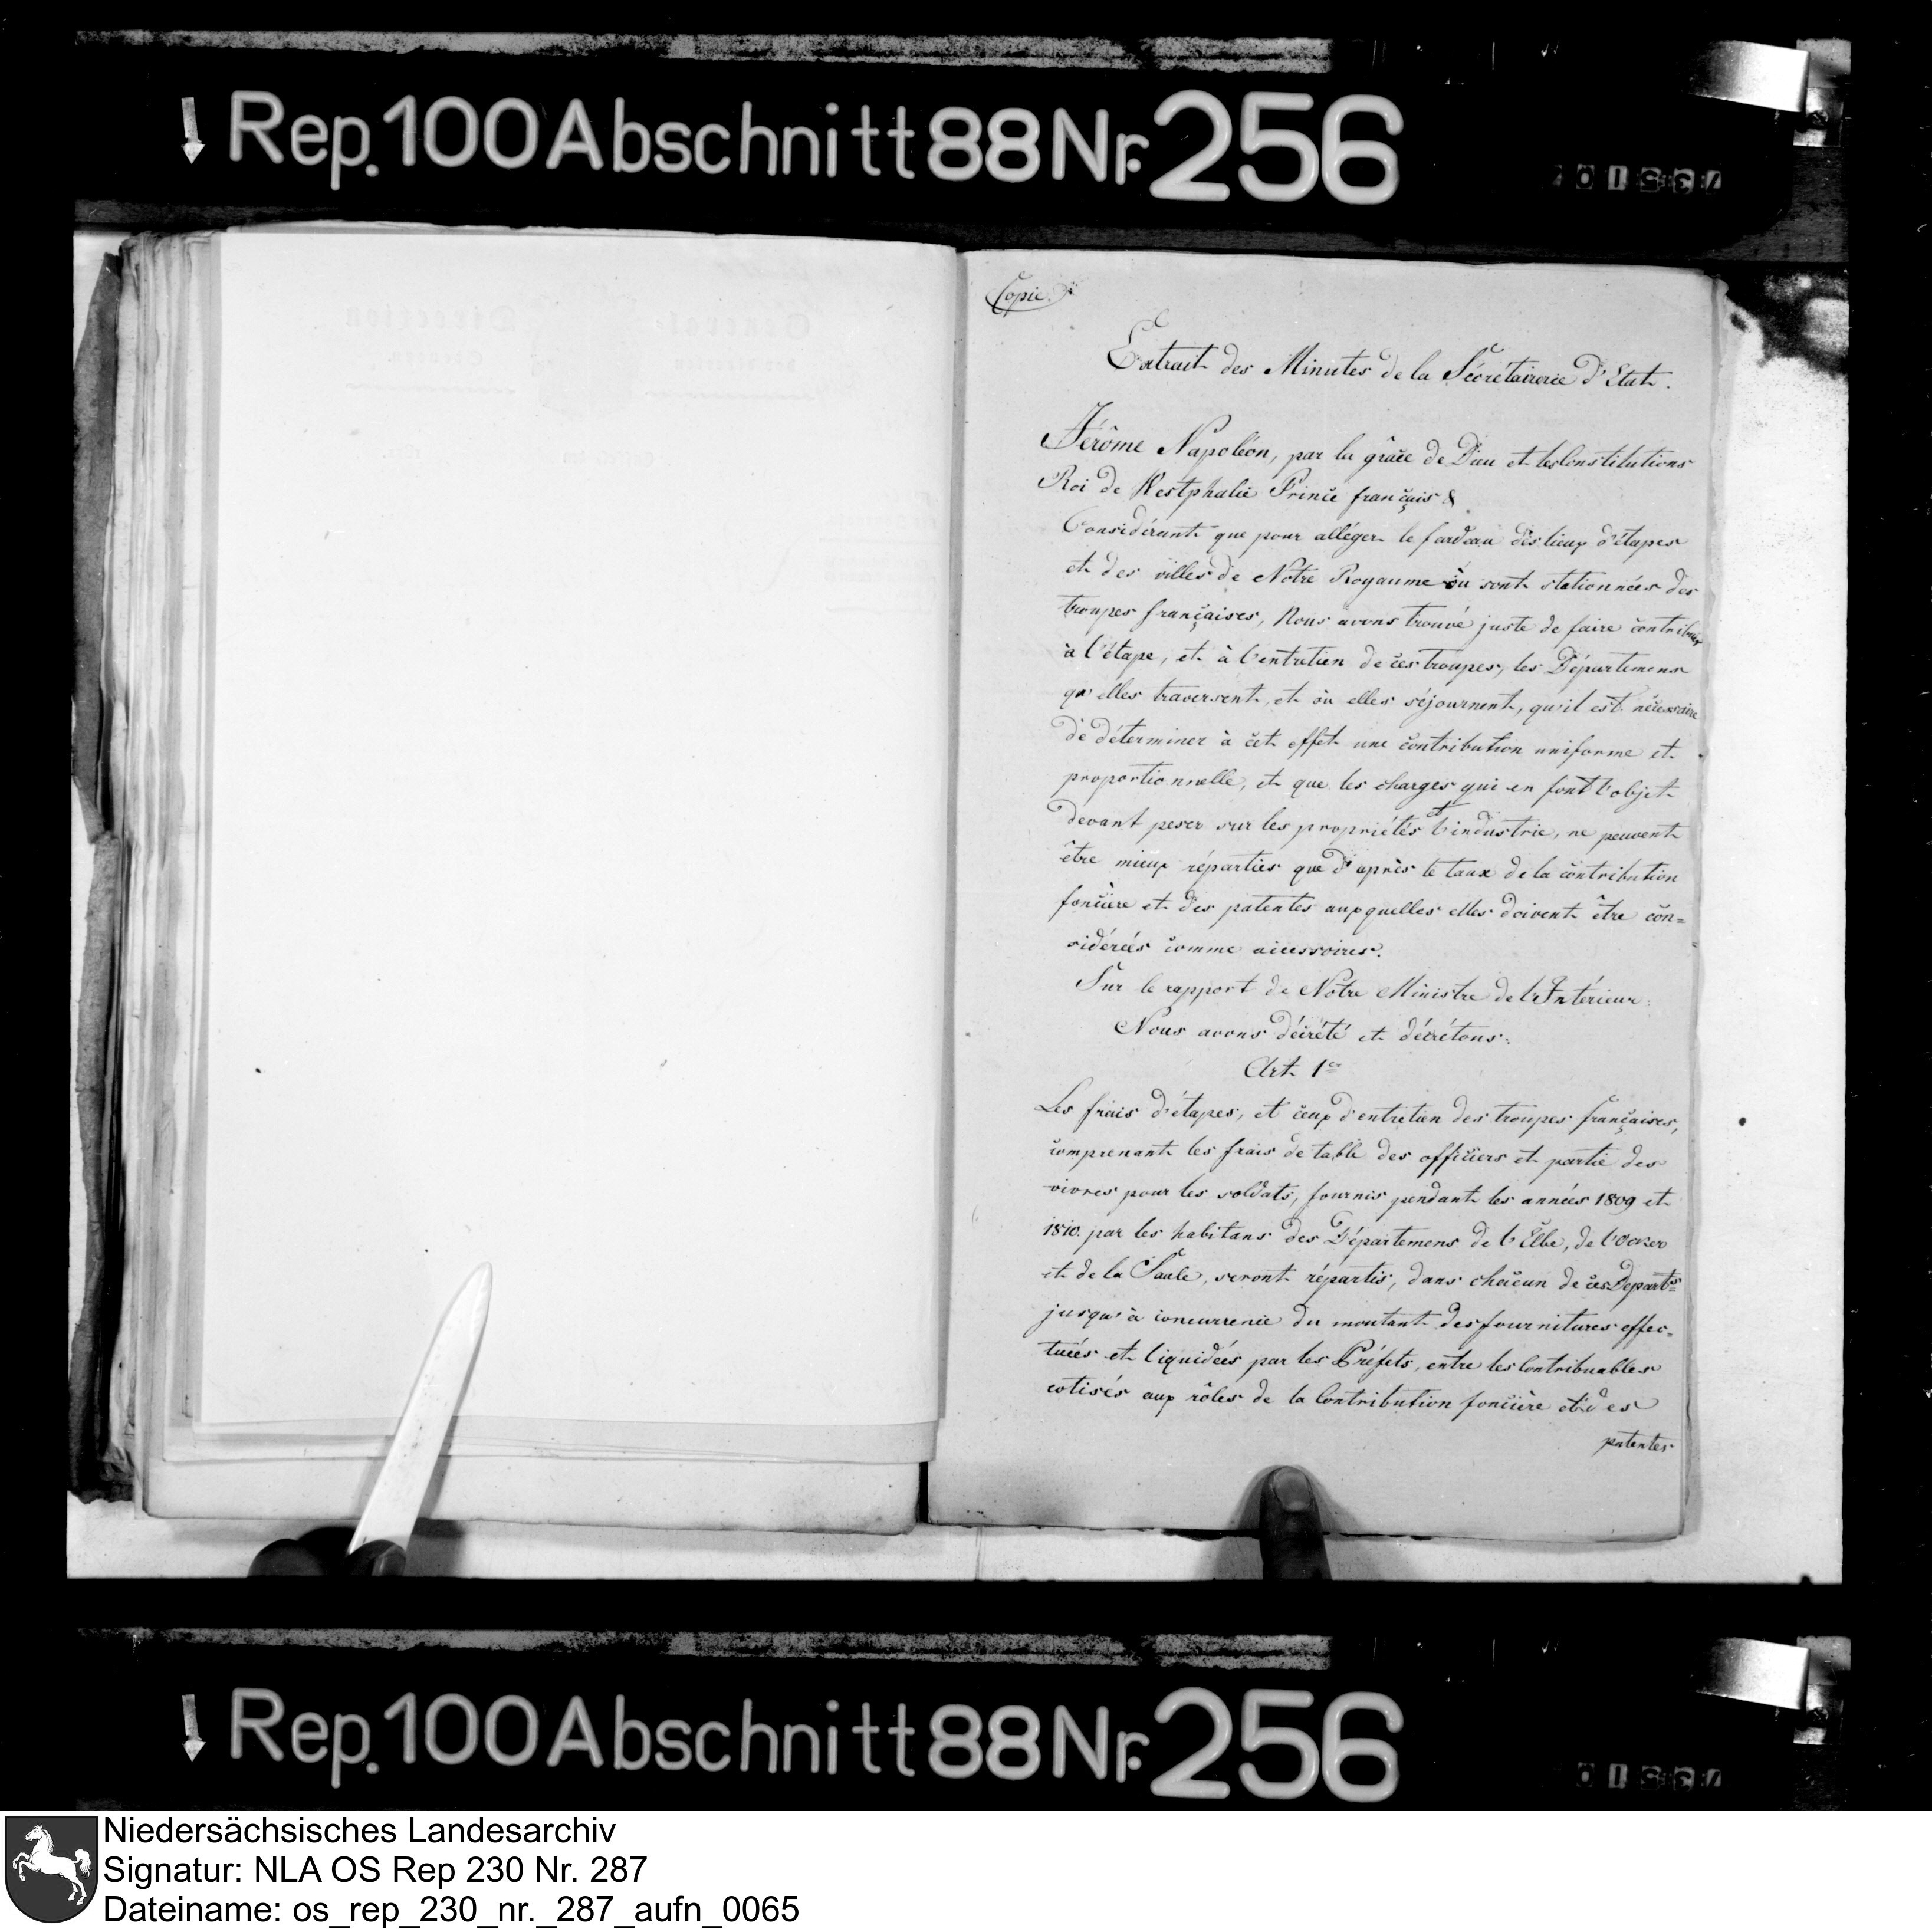 Rep. 100 Abschnitt 88 Nr. 256
Copie.
Extrait des Minutes de la Sécrétairerie d'Etat.
Jérôme Napoléon, par la grâce de Dieu et les Constitutions
Roi de Westphalie Prince français &
Considérant que pour alléger le fardeau des lieux d'étapes
et des villes de Notre Royaume où sont stationnées des
troupes françaises, Nous avons trouvé juste de faire contribuer
à l'étape, et à l'entretien de ces troupes, les Départemens
qu'elles traversent, et où elles séjournent, qu'il est nécessaire
de déterminer à cet effet une contribution uniforme et
proportionnelle, et que les charges qui en font l'objet
devant peser sur les propriétés et l'industrie, ne peuvent
être mieux réparties que d'après le taux de la contribution
foncière et des patentes auxquelles elles doivent être con=
sidérées comme accessoires.
Sur le rapport de Notre Ministre de l'Intérieur:
Nous avons décrété et décrétons:
Art. 1er
Les frais d'étapes, et ceux d'entretien des troupes françaises,
comprenant les frais de table des officiers et partie des
vivres pour les soldats, fournis pendant les années 1809 et
1810. par les habitans des Départemens de l'Elbe, de l'Ocker
et de la Saale, seront répartis, dans chacun de ces Departts
jusqu'à concurrence du montant des fournitures effec=
tuées et liquidées par les Préfets, entre les Contribuables
cotisés aux rôles de la Contribution foncière et des
patentes
Rep. 100 Abschnitt 88 Nr. 256
Niedersächsisches Landesarchiv
Signatur: NLA OS Rep 230 Nr. 287
Dateiname: os_rep_230_nr._287_aufn_0065